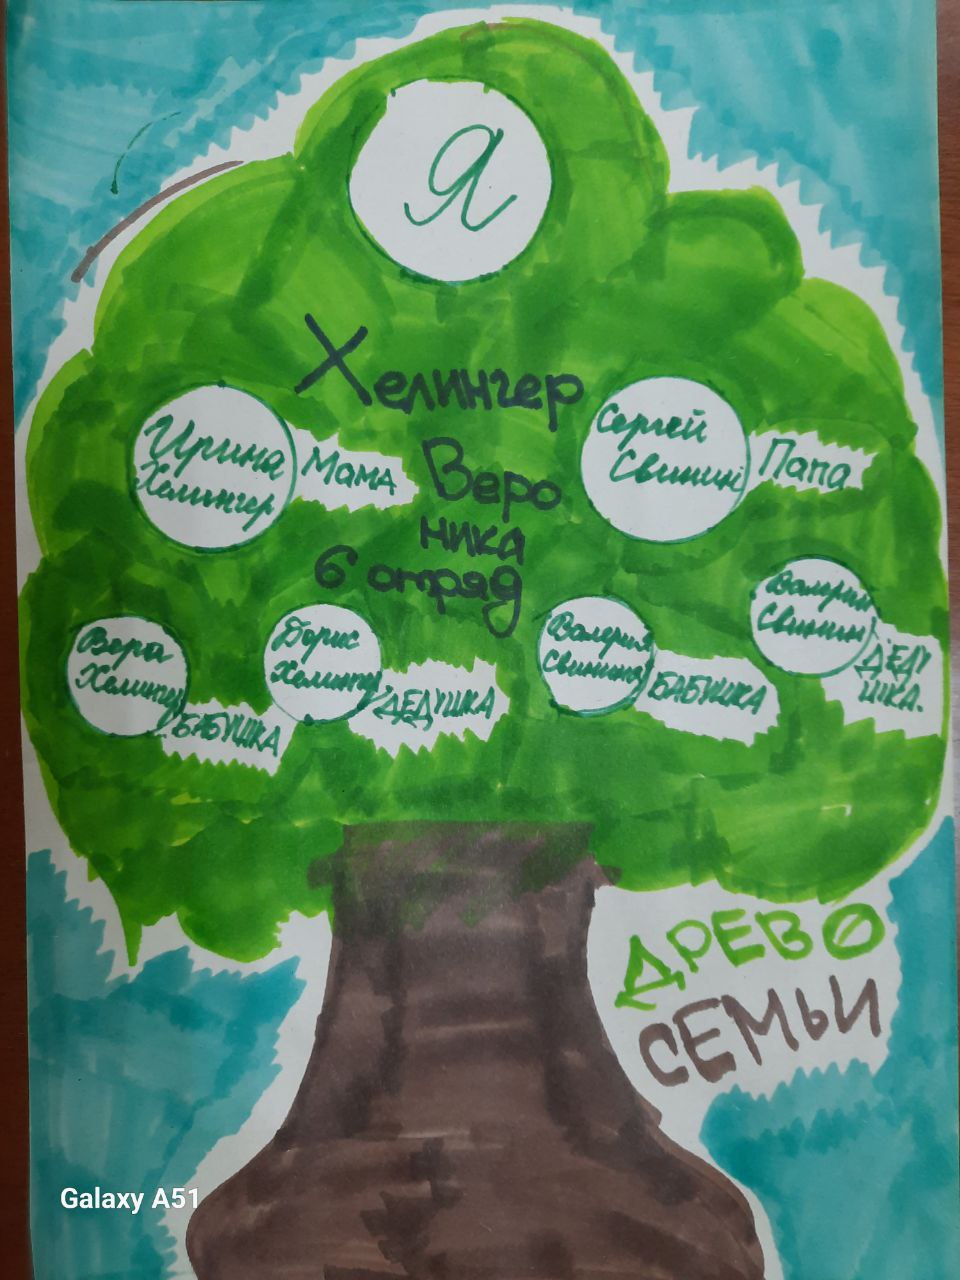 Я
Хелингер
Ирина
Хелингер
Мама
Веро
ника
6 отряд
Сергей
Свинин
Папа
Вера
Хелингер
БАБУШКА
Борис
Хелингер
ДЕДУШКА
Валерия
Свинина
БАБУШКА
Валерий
Свинин
ДЕДУ
ШКА.
ДРЕВО
СЕМЬИ
Galaxy A51